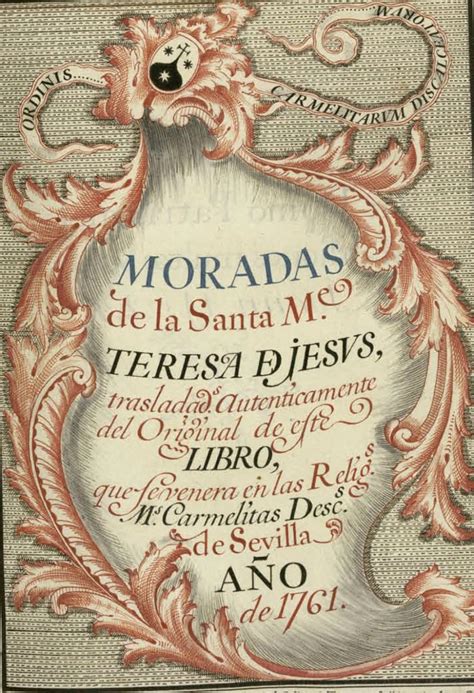 ORDINIS......
CARMELITARVM DISCALCEATORVM.
MORADAS
de la Santa M.e
TERESA DE JESVS,
trasladad.s Autenticamente
del Original de este
LIBRO,
que se venera en las Relig.s
M.s Carmelitas Desc.s
de Sevilla
AÑO
de 1761.